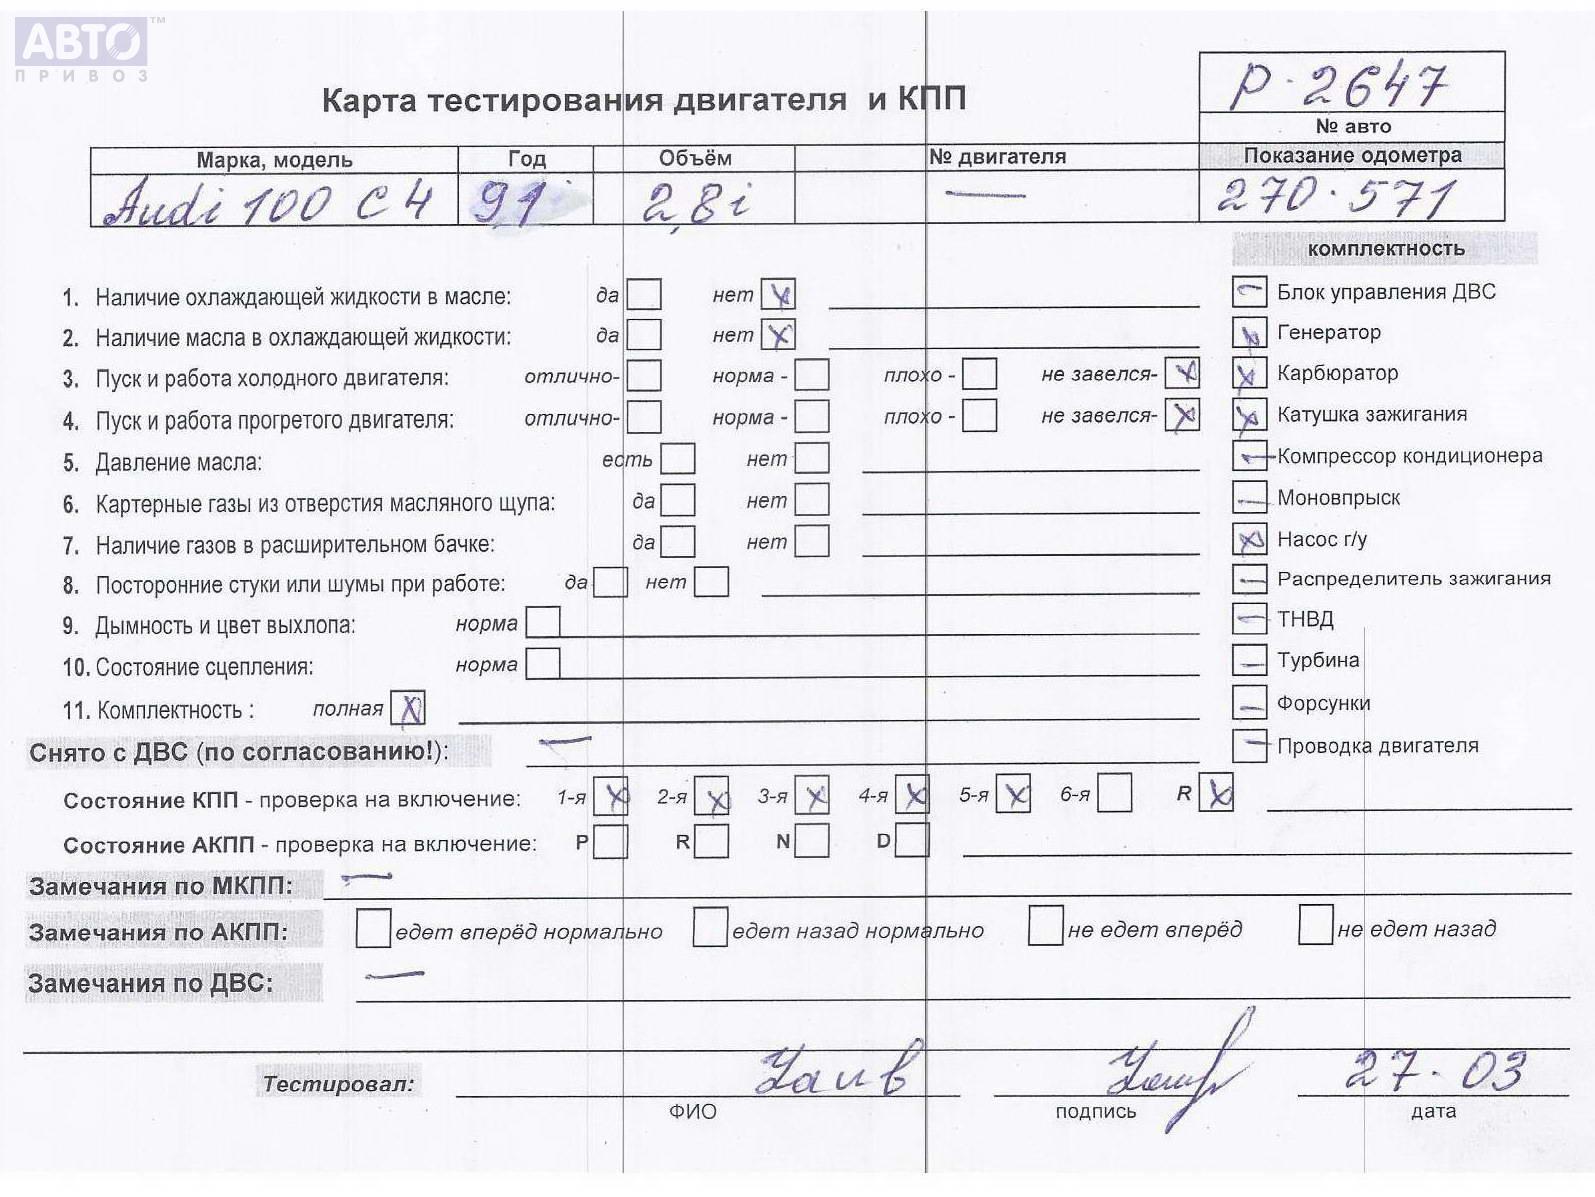 АВТО™
ПРИВОЗ
Карта тестирования двигателя и КПП
Р-2647
№ авто
Марка, модель Год Объём № двигателя Показание одометра
Audi 100 C4 91 2,8i — 270.571
комплектность
1. Наличие охлаждающей жидкости в масле: да нет X
Блок управления ДВС
2. Наличие масла в охлаждающей жидкости: да нет X
Генератор X
3. Пуск и работа холодного двигателя: отлично- норма - плохо - не завелся- X
Карбюратор X
4. Пуск и работа прогретого двигателя: отлично- норма - плохо - не завелся- X
Катушка зажигания X
5. Давление масла: есть нет
Компрессор кондиционера
6. Картерные газы из отверстия масляного щупа: да нет
Моновпрыск
7. Наличие газов в расширительном бачке: да нет
Насос г/у X
8. Посторонние стуки или шумы при работе: да нет
Распределитель зажигания
9. Дымность и цвет выхлопа: норма
ТНВД
10. Состояние сцепления: норма
Турбина
11. Комплектность : полная X
Форсунки
Снято с ДВС (по согласованию!): —
Проводка двигателя
Состояние КПП - проверка на включение: 1-я X 2-я X 3-я X 4-я X 5-я X 6-я R X
Состояние АКПП - проверка на включение: P R N D
Замечания по МКПП: —
Замечания по АКПП: едет вперёд нормально едет назад нормально не едет вперёд не едет назад
Замечания по ДВС: —
Тестировал: 27.03
ФИО подпись дата